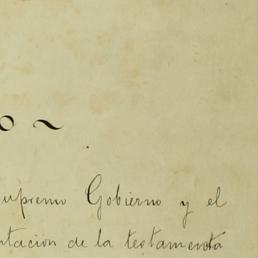 o ~
upremo Gobierno y el
ntacion de la testamenta